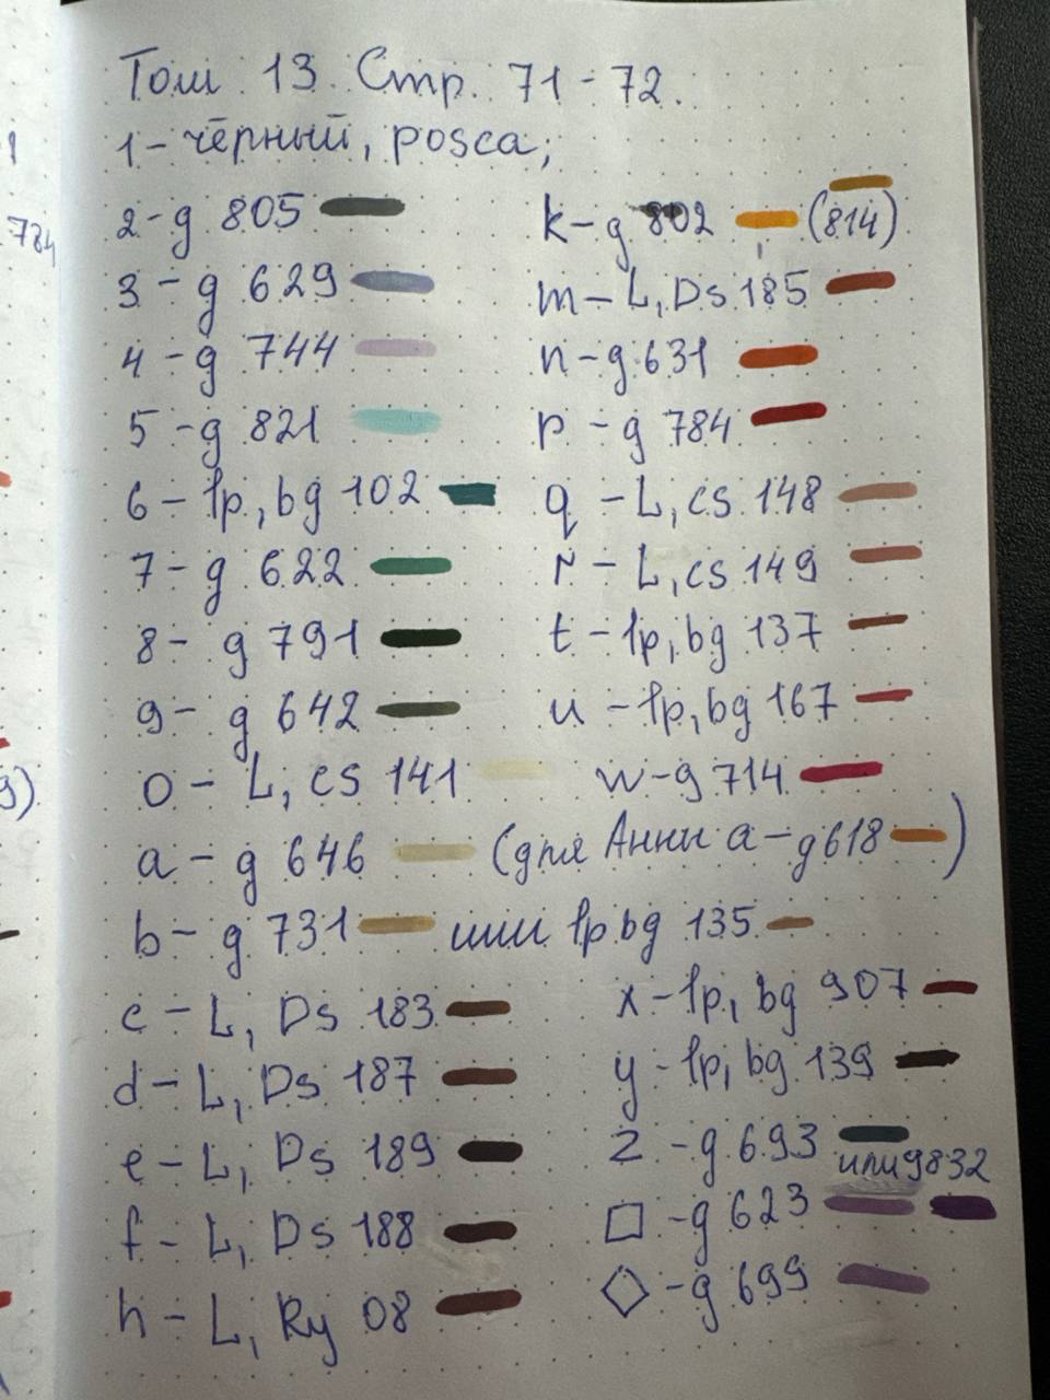 Том 13. Стр. 71-72.
1- чёрный, posca;
2-g 805
3-g 629
4-g 744
5-g 821
6-lp, bg 102
7-g 622
8-g 791
9-g 642
0-L, cs 141
a-g 646 (для Анны a-g618)
b-g 731 или lp bg 135
c-L, Ds 183
d-L, Ds 187
e-L, Ds 189
f-L, Ds 188
h-L, Ry 08
k-g 802 (814)
m-L, Ds 185
n-g 631
p-g 784
q-L, cs 148
r-L, cs 149
t-lp, bg 137
u-lp, bg 167
w-g 714
x-lp, bg 907
y-lp, bg 139
z-g 693
или g832
□-g 623
◇-g 699
784